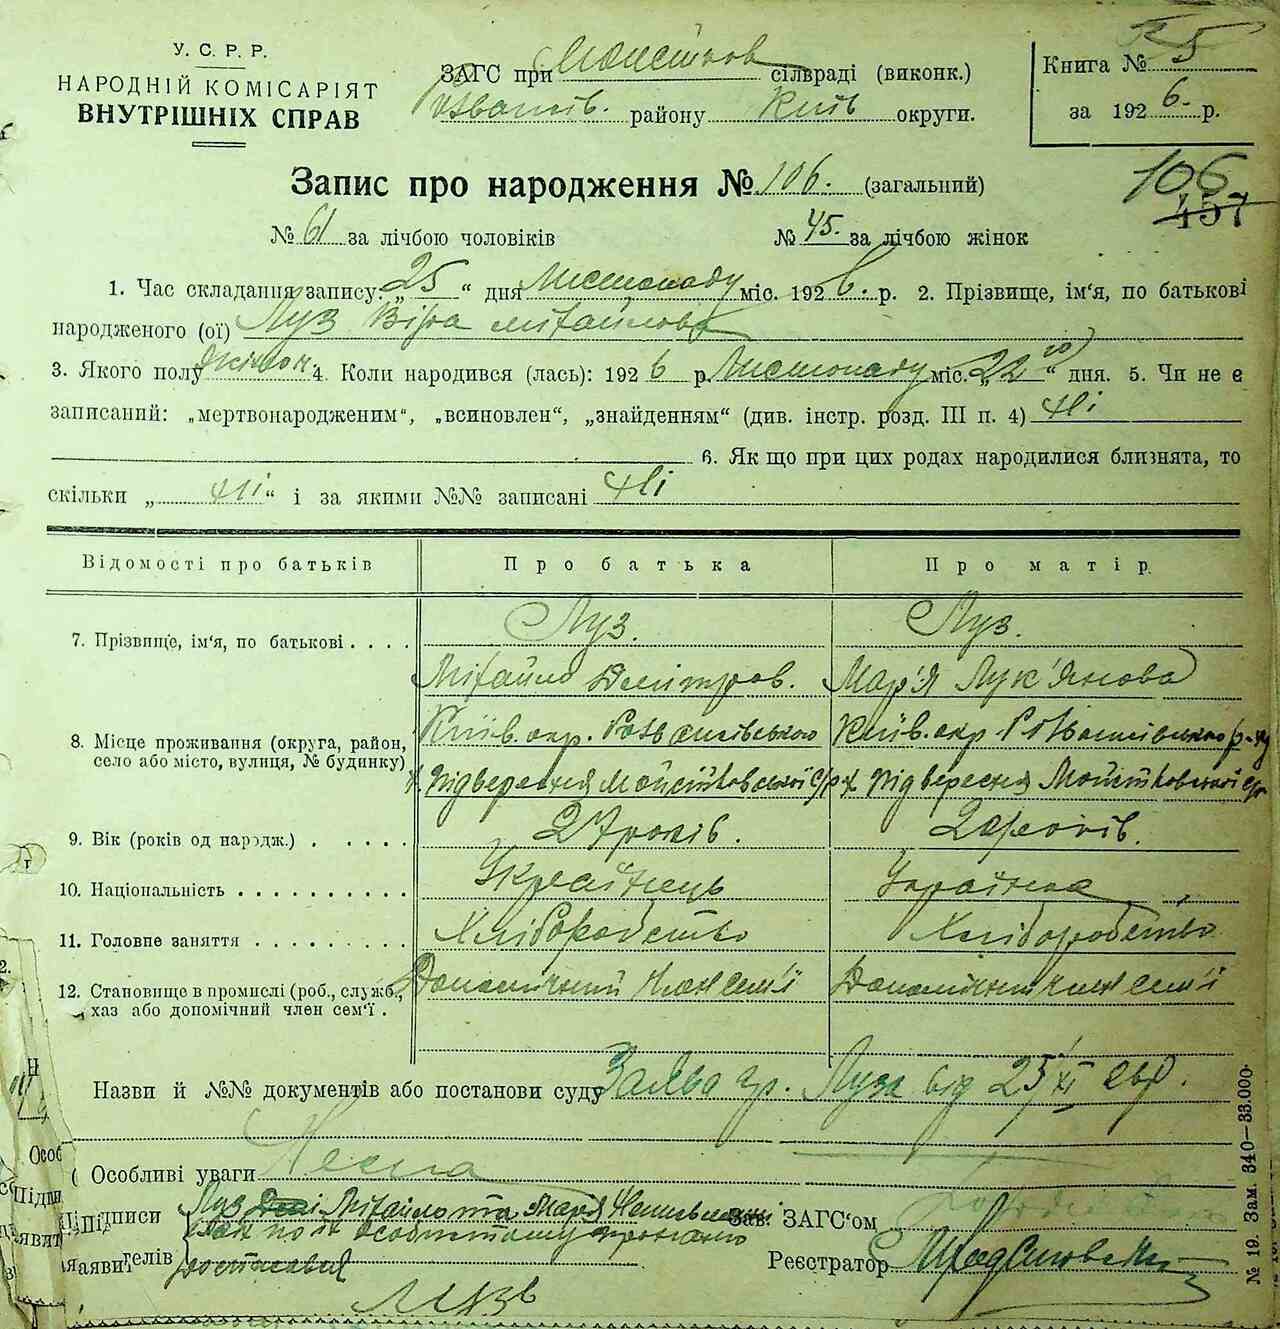 У. С. Р. Р.
НАРОДНІЙ КОМІСАРІЯТ
ВНУТРІШНІХ СПРАВ
ЗАГС при сілвраді (виконк.)
району Київ округи.
Книга № 5
за 1926 р.
Запис про народження № 106. (загальний)
106
457
№ 61 за лічбою чоловіків № 45. за лічбою жінок
1. Час складання запису: „25“ дня Листопаду міс. 1926. р. 2. Прізвище, ім'я, по батькові
народженого (ої) Луз Віра Міхайлова
3. Якого полу жіноч. 4. Коли народився (лась): 1926 р. Листопаду міс. „22“ дня. 5. Чи не є
записаний: „мертвонародженим“, „всиновлен“, „знайденням“ (див. інстр. розд. III п. 4) Ні
6. Як що при цих родах народилися близнята, то
скільки „Ні“ і за якими №№ записані Ні
Відомості про батьків Про батька Про матір
7. Прізвище, ім'я, по батькові . . . . Луз. Луз.
Міхайло Дмітров. Мар'я Лук'янова
8. Місце проживання (округа, район, село або місто, вулиця, № будинку)
Київ. окр. Розважівського Київ. окр. Розважівського р-ну
х. Підвересня Мойстковської с/р х. Підвересня Мойстковської с/р
9. Вік (років од народж.) . . . . . 27 років. років.
10. Національність . . . . . . . . . Українець Українка
11. Головне заняття . . . . . . . . Хліборобство Хліборобство
12. Становище в промислі (роб., служб., хаз або допомічний член сем'ї .
Допомічний член сем'ї Допомічний член сем'ї
Назви й №№ документів або постанови суду Заява гр. Луза від 25/XI
Особливі уваги Нема
Підписи Луз Міхайло та Марія Неписьменні
Зав. ЗАГС'ом
заявителів особистому проханню
Реєстратор
№ 19. Зам. 340—33.000-